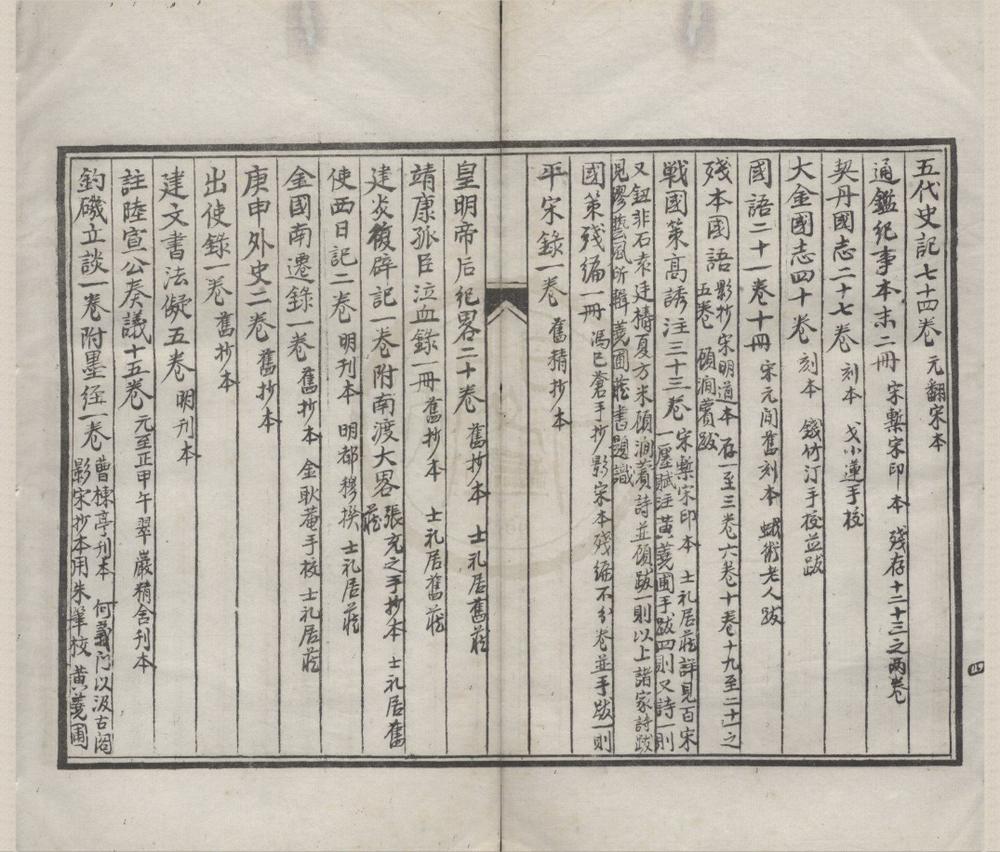 五代史記七十四卷 元翻宋本
通鑑紀事本末二冊 宋槧宋印本 殘存十二十三之兩卷
契丹國志二十七卷 刻本 戈小蓮手校
大金國志四十卷 刻本 錢竹汀手校並跋
國語二十一卷十冊 宋元間舊刻本 蛾術老人跋
殘本國語 影抄宋明道本 存一至三卷六卷十卷十九至二十一之
五卷 傾澗薲跋
戰國策高誘注三十三卷 宋槧宋印本 士礼居藏詳見百宋
一廛賦注黄蕘圃手跋四則又詩一則
又鈕非石袁廷檮夏方米顧澗薲詩並傾跋一則以上諸家詩跋
見繆藝風所輯蕘圃藏書題識
國策残編一冊 馮已蒼手抄影宋本残編不分卷並手跋一則
平宋錄一卷 舊精抄本
皇明帝后紀畧二十卷 舊抄本 士礼居舊藏
靖康孤臣泣血錄一冊 舊抄本 士礼居舊藏
建炎復辟記一卷附南渡大畧 張充之手抄本 士礼居舊
藏
使西日記二卷 明刊本 明都穆撰 士礼居藏
金國南遷錄一卷 舊抄本 金耿菴手校 士礼居藏
庚申外史二卷 舊抄本
出使錄一卷 舊抄本
建文書法儗五卷 明刊本
註陸宣公奏議十五卷 元至正甲午翠巖精舍刊本
釣磯立談一卷附墨經一卷 曹楝亭刊本 何義門以汲古閣
影宋抄本用朱筆校 黄蕘圃
四